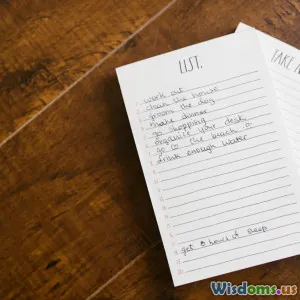 LIST.
TAKE
work out
clean the house
groom the dog
make dinner
go shopping
organise your desk
go to the beach
drink enough water
get 8 hours of sleep
Wisdoms.us